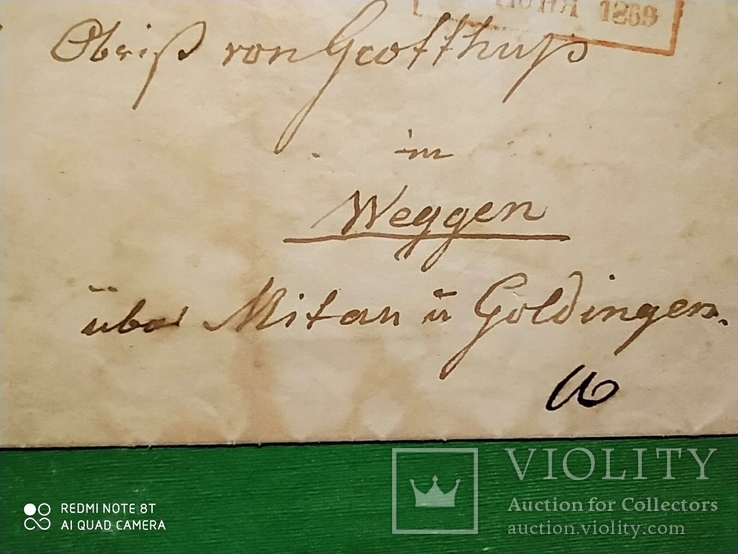 1869
Obriß von Grotthuß
in
Weggen
über Mitau ū Goldingen.
VIOLITY
Auction for Collectors
auction.violity.com
REDMI NOTE 8T
AI QUAD CAMERA